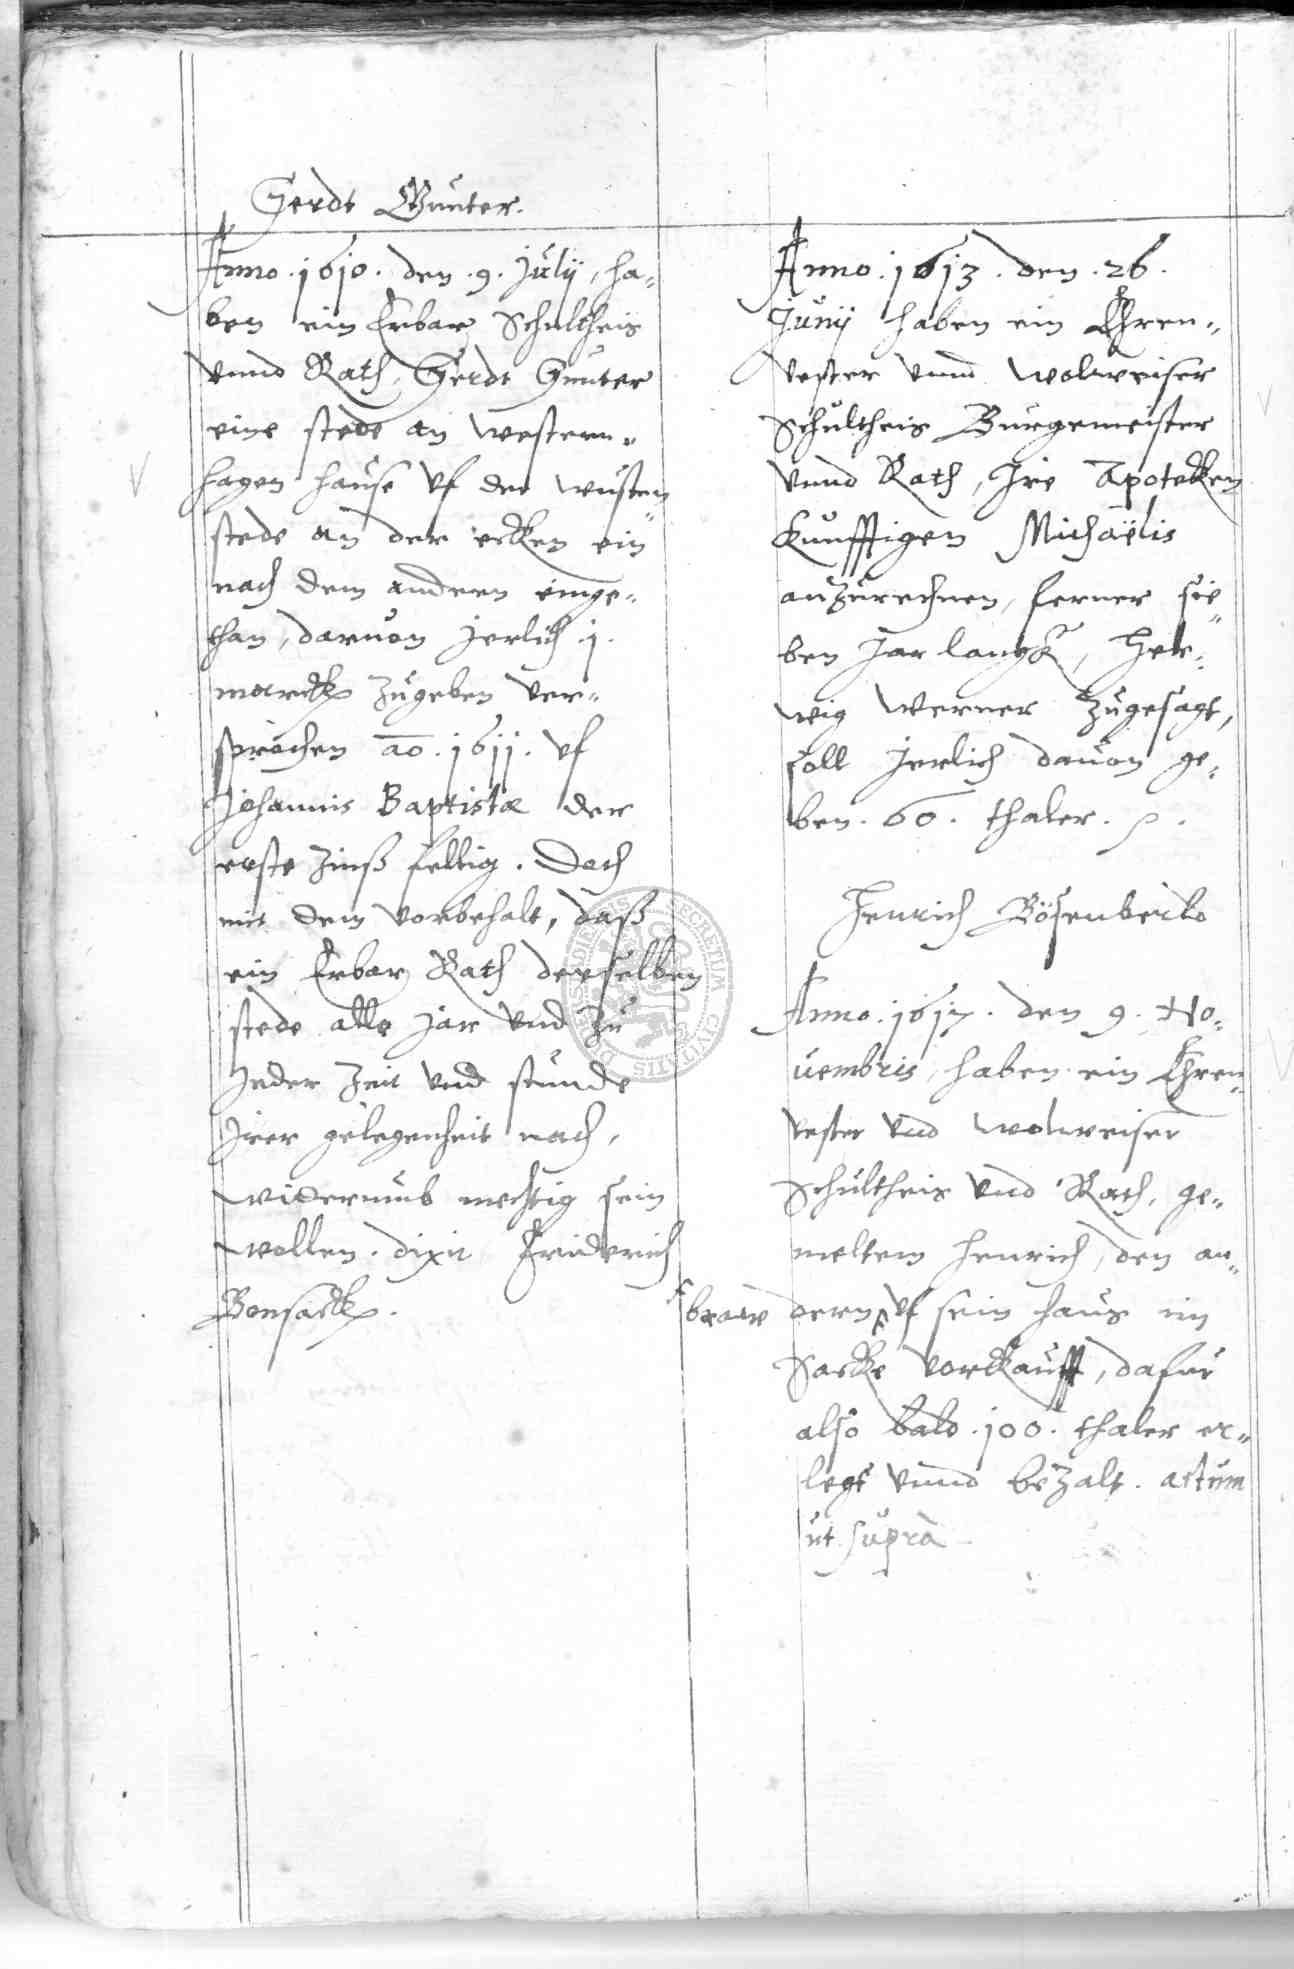 Gerdt Gunter.
Anno . 1610 . den . 9 . Julij, ha„
ben ein Erbar Schultheis
vnnd Rath, Gerdt Gunter
eine stede an Western„
hagen hause vf der wusten
stede an der ecken ein„
nach dem anderen einge„
than, daruon Jerlich .1.
marck zugeben ver„
sprochen ao . 1611 . vf
Johannis Baptistæ der
erste Zinß fellig . Doch
mit dem vorbehalt, daß
ein Erbar Rath derselben
stede alle Jar vnd zu
Jeder Zeit vnd stunde
Jrer gelegenheit nach,
widerumb mechtig sein
wollen . dixit Friderich
Bonsack .
Anno . 1613 . den . 26 .
Junij haben ein Ehren„
vester vnnd wolweiser
Schultheis Burgemeister
vnnd Rath, Jre Apotecken
kunfftigen Michaëlis
anzurechnen, ferner sie„
ben Jar langk, Her„
wig Werner zugesagt,
soll Jerlich dauon ge„
ben . 60 . thaler .
Henrich Bösenberto
Anno . 1617 . den 9 . No„
uembris, haben ein Ehren„
vester vnd wolweiser
Schultheis vnd Rath, ge„
meltem Henrich, den an„
braw dern vf sein haus im
Sacke vorkaufft, dafur
also bald . 100 . thaler er„
legt vnnd bezalt . actum
ut supra
SECRETUM CIVITATIS